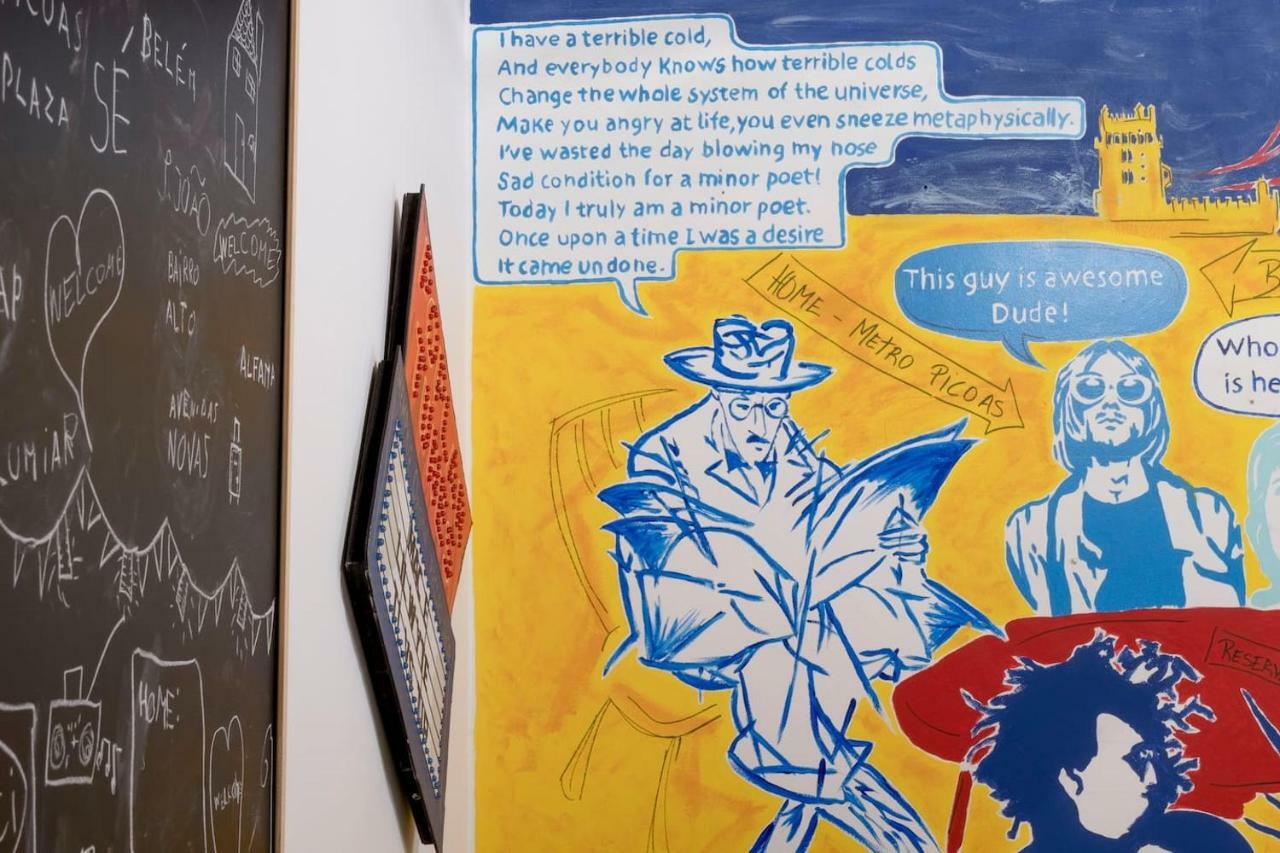 PLAZA
SÉ
BELÉM
S. JOÃO
WELCOME
WELCOME
BAIRRO
ALTO
ALFAMA
AVENIDAS
NOVAS
HOME:
WELCOME
I have a terrible cold,
And everybody Knows how terrible colds
Change the whole system of the universe,
Make you angry at life, you even sneeze metaphysically.
I've wasted the day blowing my nose
Sad condition for a minor poet!
Today I truly am a minor poet.
Once upon a time I was a desire
It came undone.
HOME - METRO PICOAS
This guy is awesome
Dude!
Who
is he